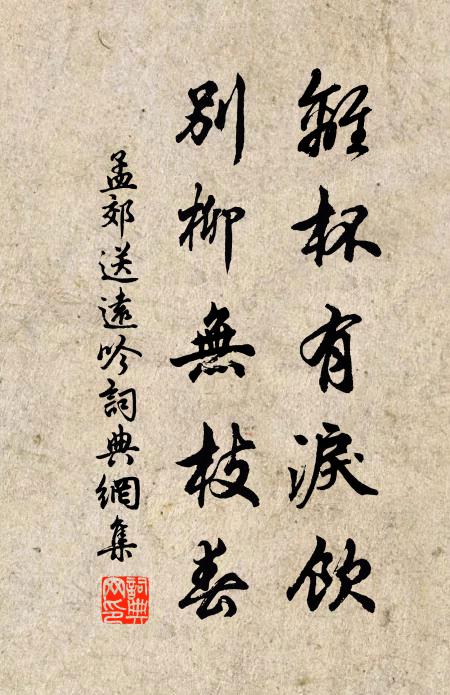 離杯有淚飲
別柳無枝春
孟郊送遠吟詞典網集
詞典
網印